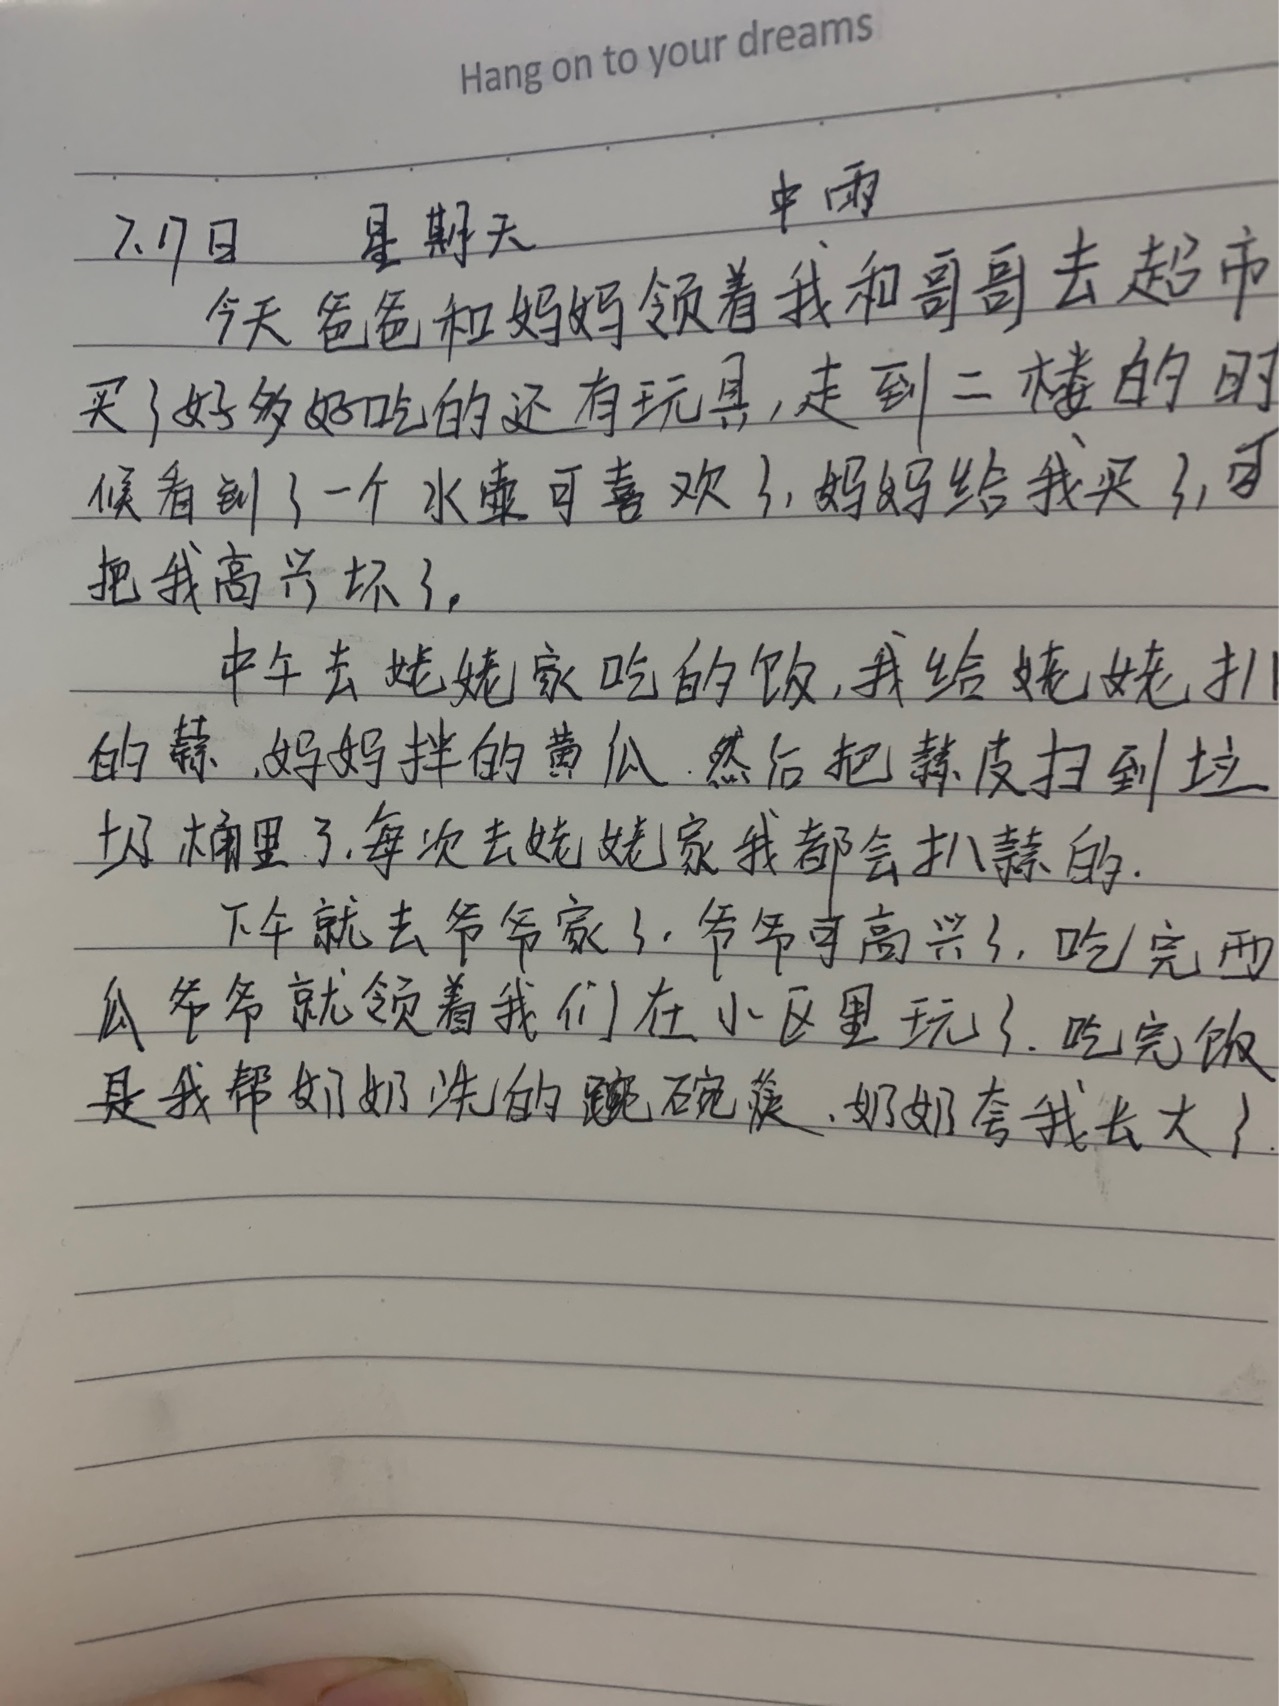 Hang on to your dreams
7.17日 星期天 中雨
今天爸爸和妈妈领着我和哥哥去超市
买了好多好吃的还有玩具,走到二楼的时
候看到了一个水壶可喜欢了,妈妈给我买了,可
把我高兴坏了。
中午去姥姥家吃的饭,我给姥姥扒
的蒜、妈妈拌的黄瓜.然后把蒜皮扫到垃
圾桶里了.每次去姥姥家我都会扒蒜的.
下午就去爷爷家了.爷爷可高兴了.吃完西
瓜爷爷就领着我们在小区里玩了.吃完饭
是我帮奶奶洗的碗筷、奶奶夸我长大了.